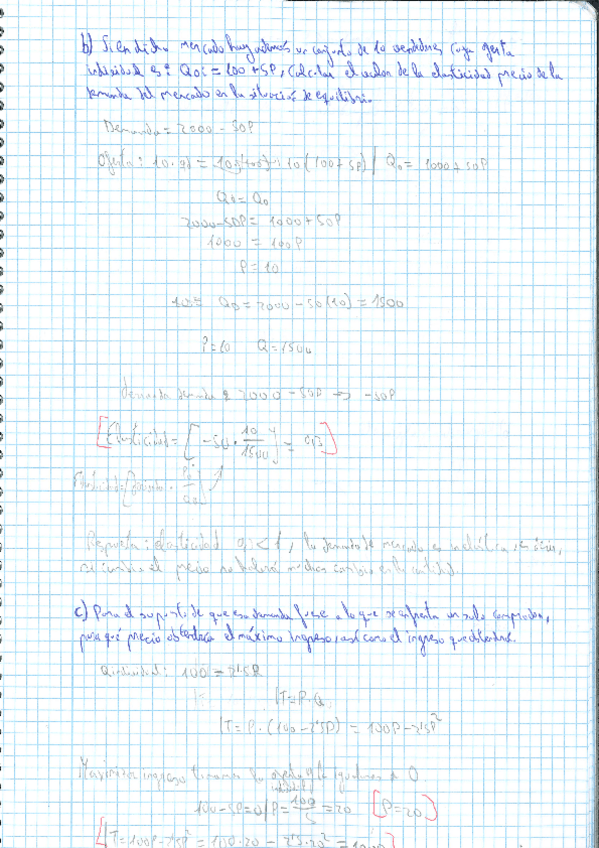 b) Si en dicho mercado hay además un conjunto de 10 vendedores cuya oferta
individual es: Qoi = 100 + 5P, Calcular el valor de la elasticidad precio de la
demanda del mercado en la situación de equilibrio.
Demanda = 2000 - 50P
Oferta: 10 · = 10(100 + 5P) | Qo = 1000 + 50P
Qd = Qo
2000 - 50P = 1000 + 50P
1000 = 100P
P = 10
QD = 2000 - 50(10) = 1500
P = 10 Q = 1500
2000 - 50P → -50P
[Elasticidad = [-50 · 10/1500] =
Respuesta: elasticidad < 1, la demanda de mercado es inelástica, es decir,
el precio no habrá cambios en la cantidad.
c) Para el supuesto de que esa demanda fuese a la que se enfrenta un solo comprador,
para qué precio obtendría el máximo ingreso, así como el ingreso que obtendría.
Q individual: 100 - 2'5P
IT = P · Q
IT = P · (100 - 2'5P) = 100P - 2'5P²
Maximizar ingreso igualamos a 0
100 - 5P = 0 | P = 100/5 = 20 [P = 20]
[IT = 100P - 2'5P² = 100 · 20 - 2'5 · 20² =